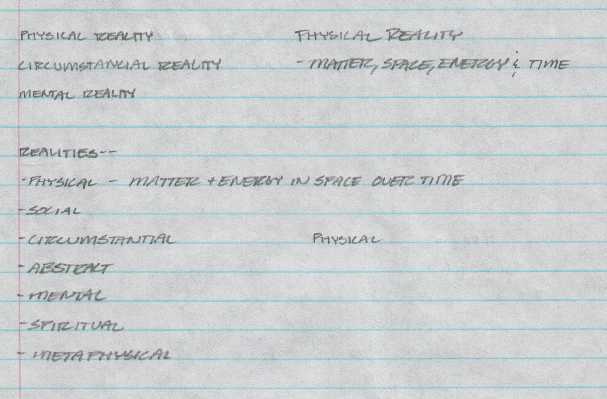 PHYSICAL REALITY
CIRCUMSTANCIAL REALITY
MENTAL REALITY
PHYSICAL REALITY
- MATTER, SPACE, ENERGY & TIME
REALITIES--
-PHYSICAL - MATTER + ENERGY IN SPACE OVER TIME
-SOCIAL
-CIRCUMSTANTIAL
PHYSICAL
-ABSTRACT
-MENTAL
-SPIRITUAL
- METAPHYSICAL